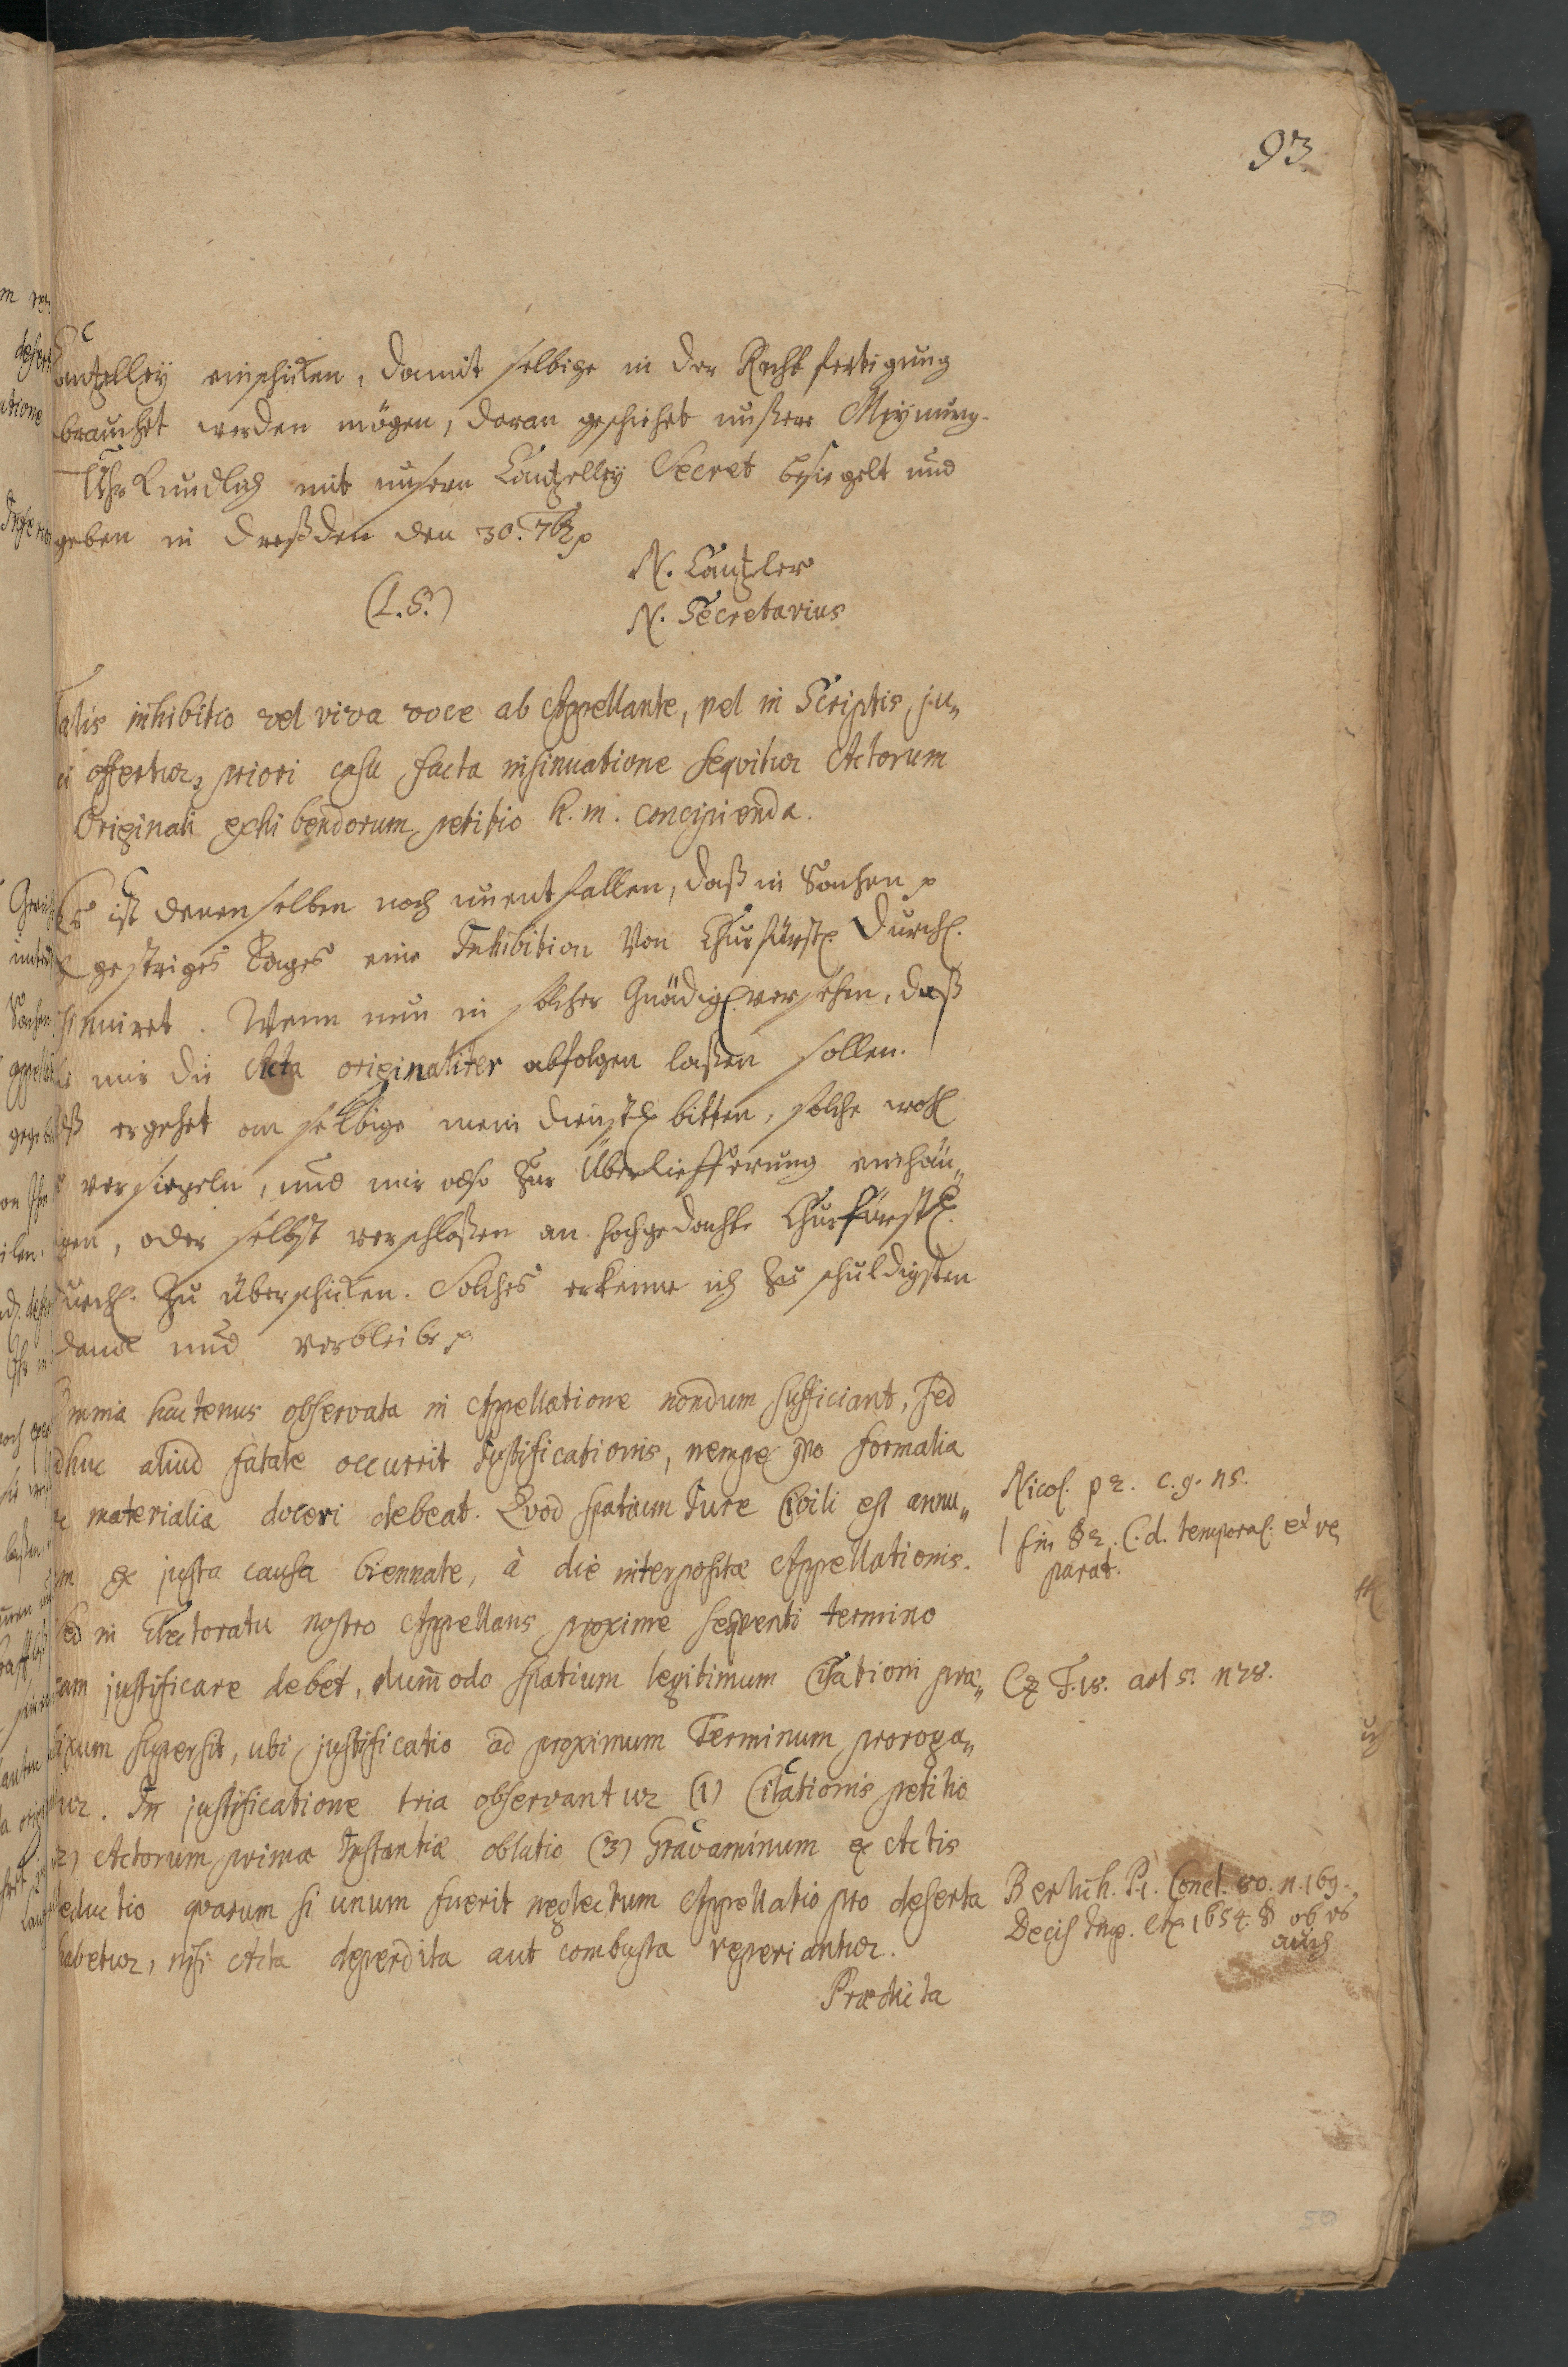 93
Cantzelley einschicken, damit selbige in der Rechtfertigung
brauchet werden mögen, daran geschiehet unßere Meynung.
Uhrkundlich mit unsern Cantzelley Secret besiegelt und
geben in Dreßden den 30. 7br p
N. Cantzler
(L.S.)
N. Secretarius
Talis inhibitio vel viva voce ab Appellante, vel in Scriptis ju„
ci offertur, priori casu facta insinuatione seqvitur Actorum
Originali exhibendorum petitio h. m. concipienda.
Es ist denenselben noch unentfallen, daß in Sachen p
gestriges Tages eine Inhibition von Churfürstl. Durchl.
sinuiret. Wenn nun in solcher Gnädigl. versehen, daß
mir die Acta originaliter abfolgen laßen sollen.
alß ergehet an selbige mein dienstl. bitten, solche wohl
versiegeln, und mir also zur Überliefferung einhän„
gen, oder selbst verschloßen an hochgedachte Churfürstl.
Durchl. zu überschicken. Solches erkenne ich zu schuldigsten
danck und verbleibe p
Omnia hactenus observata in Appellatione nondum sufficiant, sed
adhuc aliud fatale occurrit Justificationis, nempe quo formalia
materialia doceri debeat. Qvod spatium Jure Civili est annu„
um ex justa causa biennale, à die interpositæ Appellationis.
Sed in Electoratu nostro Appellans proxime seqventi termino
eam justificare debet, dum̄odo spatium legitimum Citationi præ„
fixum supersit, ubi justificatio ad proximum Terminum proroga„
tur. In justificatione tria observantur (1) Citationis petitio
(2) Actorum primæ Instantiæ oblatio (3) Gravaminum ex Actis
deductio qvarum si unum fuerit neglectum Appellatio pro deserta
habetur, nisi Acta deperdita aut combusta reperiantur.
Prædicta
Nicol. p 2. c. 9. n 5.
l fin § 2. C. d. temporal. et re
parat.
Cz T. 18. art 5. n 28.
Berlich. P. 1. Concl. 80. n. 169.
Decis Imp. 1654. § ob es
auch